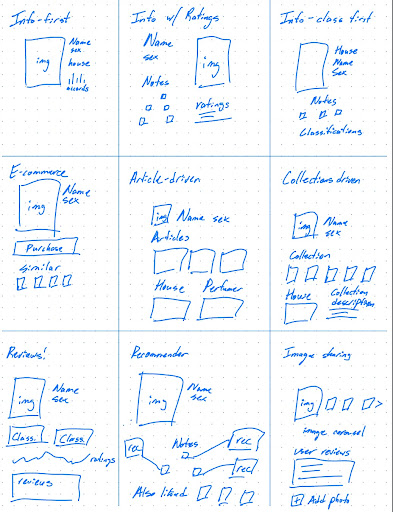 Info-first
img
Name
sex
house
accords
Info w/ Ratings
Name
sex
img
Notes
ratings
Info-class first
img
House
Name
Sex
Notes
Classifications
E-commerce
img
Name
sex
Purchase
Similar
Article-driven
img
Name sex
Articles
House
Perfumer
Collections driven
img
Name
sex
Collection
House
Collection
description
Reviews!
img
Name
sex
Class.
Class.
ratings
reviews
Recommender
img
Name
sex
rec
Notes
rec
rec
Also liked
Image sharing
img
image carousel
user reviews
+ Add photo